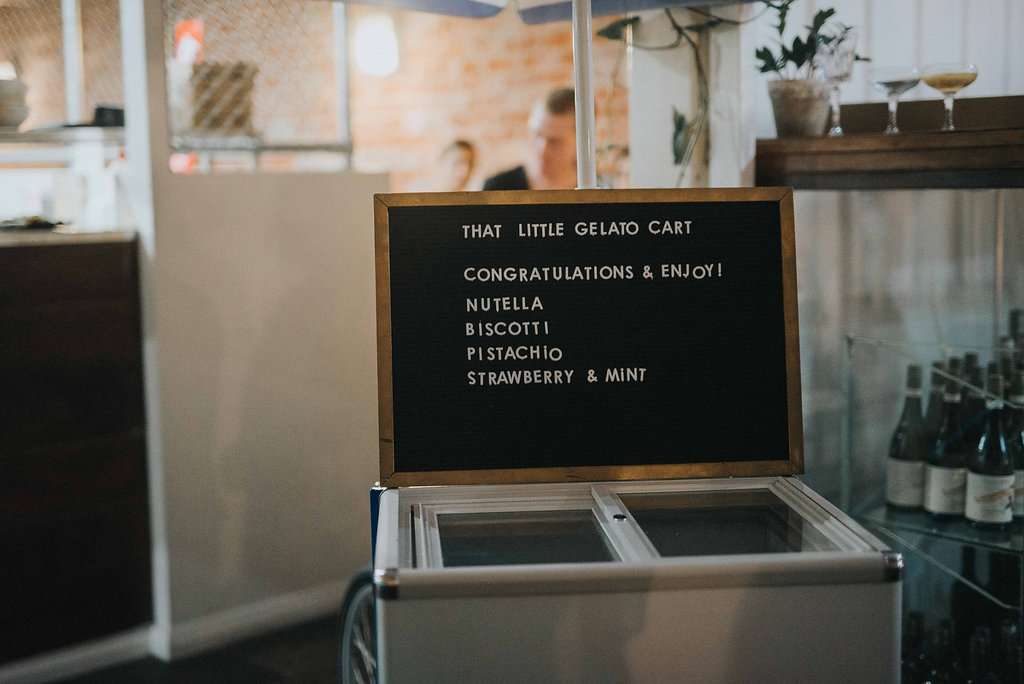 THAT LITTLE GELATO CART
CONGRATULATIONS & ENJOY!
NUTELLA
BISCOTTI
PISTACHIO
STRAWBERRY & MINT